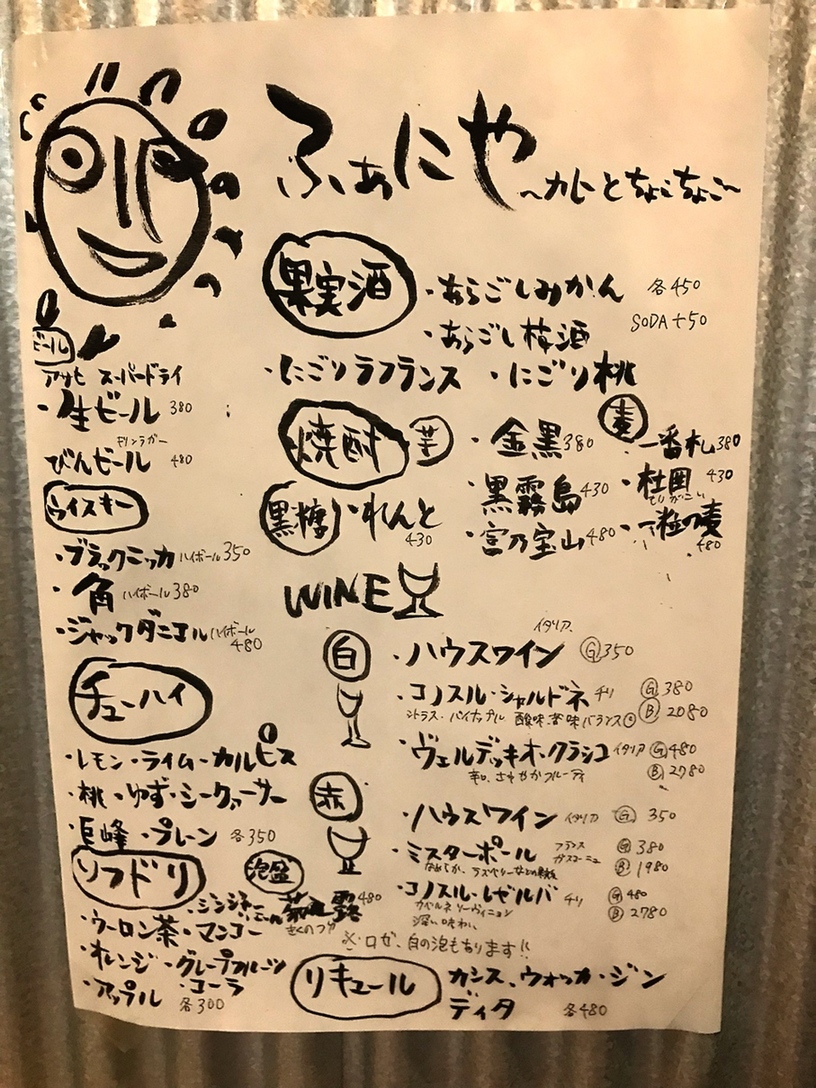 ふぁにや
~カレーとちょこちょこ~
ビール
アサヒ スーパードライ
・生ビール 380
キリンラガー
びんビール 480
ウイスキー
・ブラックニッカ ハイボール 350
・角 ハイボール 380
・ジャックダニエル ハイボール 480
チューハイ
・レモン・ライム・カルピス
・桃・ゆず・シークァーサー
・巨峰・プレーン 各350
ソフドリ
・ジンジャーエール
・ウーロン茶・マンゴー
・オレンジ・グレープフルーツ
・アップル・コーラ
各300
果実酒
・あらごしみかん 各450
・あらごし梅酒 SODA+50
・にごりラフランス ・にごり桃
焼酎
芋
・金黒 380
・黒霧島 430
・宮乃宝山 480
麦
・一番札 380
・杜囲 430
・一粒の麦 480
黒糖 れんと
430
WINE
白
イタリア
・ハウスワイン Ⓖ350
・コノスル・シャルドネ チリ Ⓖ380
シトラス・パイナップル 酸味、苦味バランス◎ Ⓑ2080
・ヴェルデッキオ・クラシコ イタリア Ⓖ480
辛口、さわやかフルーティ Ⓑ2780
赤
・ハウスワイン イタリア Ⓖ 350
・ミスターポール フランス ガスコーニュ Ⓖ380
Ⓑ1980
・コノスル・レゼルバ チリ Ⓖ480
カベルネソーヴィニヨン Ⓑ2780
深い味わい
※・ロゼ、白の泡もあります!!
泡盛
菊之露 480
きくのつゆ
リキュール
カシス、ウォッカ・ジン
ディタ 各480